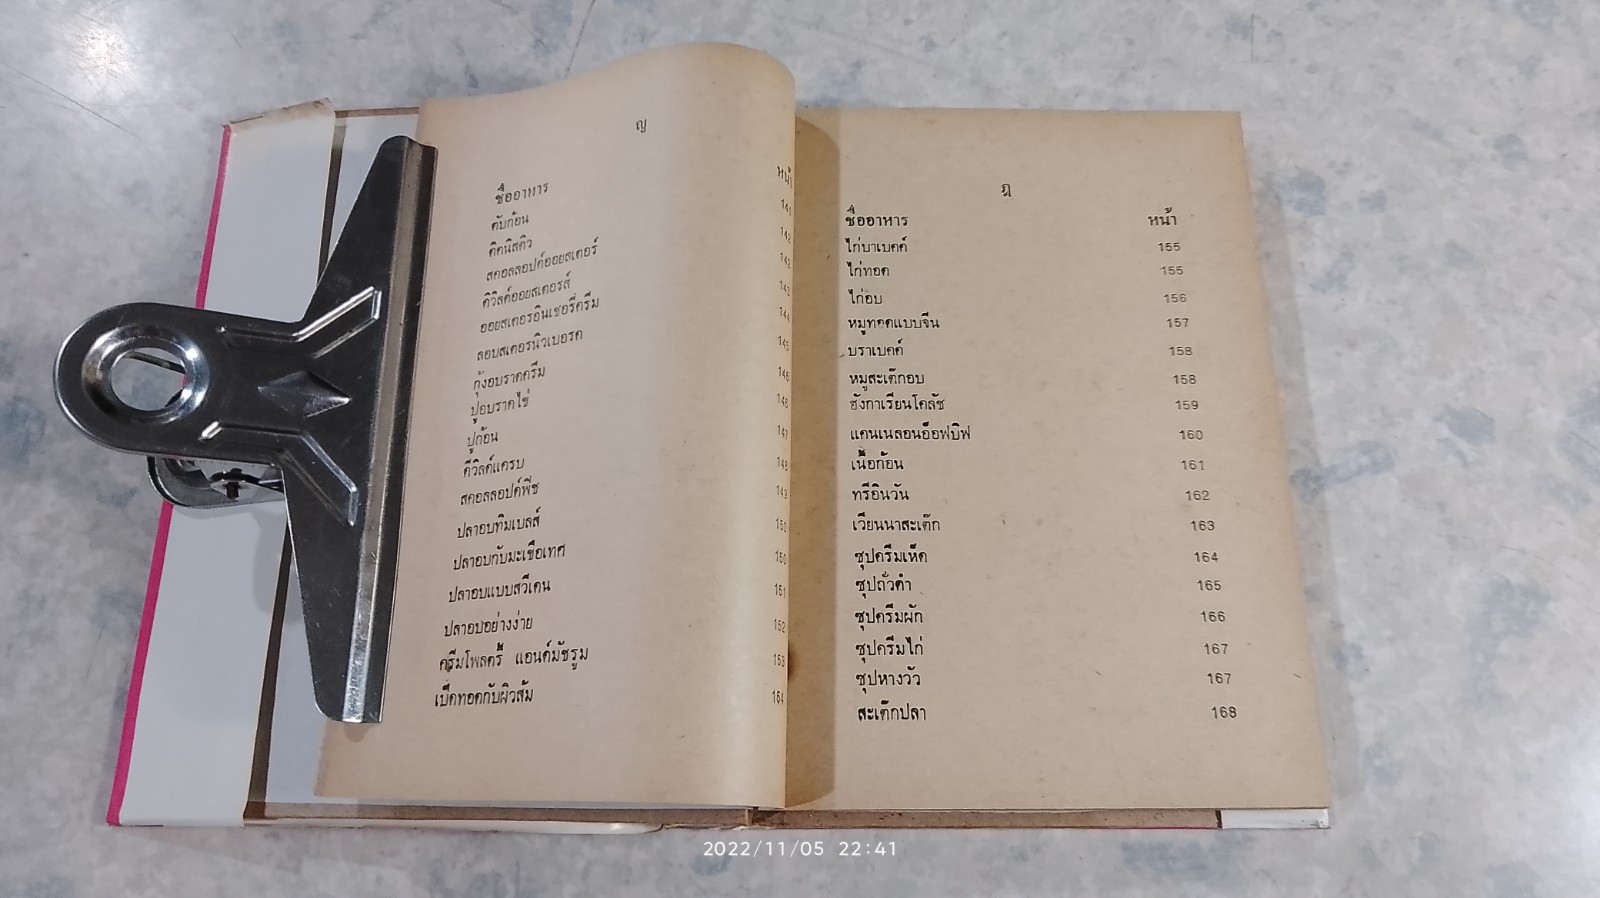 ญ
ชื่ออาหาร หน้า
ตับก้อน 141
คิดนิสติว 142
สคอลลอปด์ออยสเตอร์ 142
ดิวิลด์ออยสเตอรส์ 143
ออยสเตอรอินเชอรี่ครีม 144
ลอบสเตอรนิวเบอรค 145
กุ้งอบราดครีม 146
ปูอบราดไข่ 146
ปูก้อน 147
ดีวิลด์แครบ 148
สคอลลอปด์ฟิช 149
ปลาอบทิมเบลส์ 150
ปลาอบกับมะเขือเทศ 150
ปลาอบแบบสวีเดน 151
ปลาอบอย่างง่าย 152
ครีมโพลตรี้ แอนด์มัชรูม 153
เป็ดทอดกับผิวส้ม 154
ฎ
ชื่ออาหาร หน้า
ไก่บาเบคค์ 155
ไก่ทอด 155
ไก่อบ 156
หมูทอดแบบจีน 157
บราเบคค์ 158
หมูสะเต๊กอบ 158
ฮังกาเรียนโคลัช 159
แคนเนลอนอ็อฟบิฟ 160
เนื้อก้อน 161
ทรีอินวัน 162
เวียนนาสะเต๊ก 163
ซุปครีมเห็ด 164
ซุปถั่วดำ 165
ซุปครีมผัก 166
ซุปครีมไก่ 167
ซุปหางวัว 167
สะเต๊กปลา 168
2022/11/05 22:41